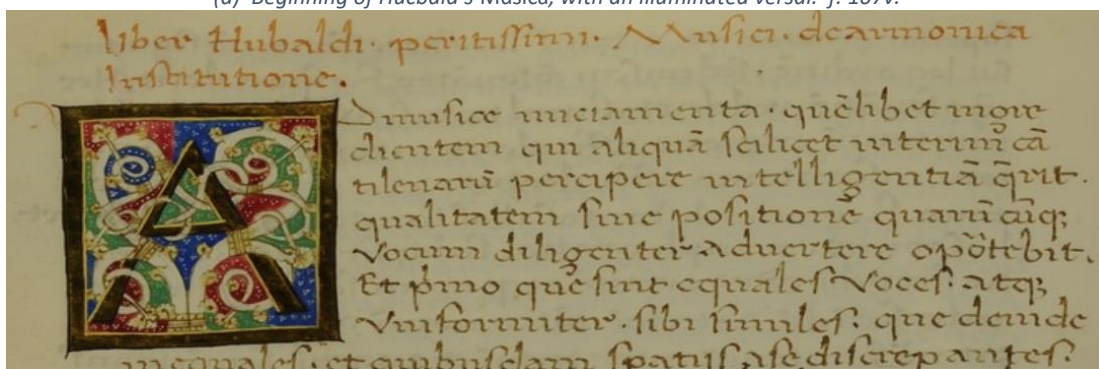 (a) Beginning of Hucbald's Musica, with an illuminated versal. f. 107v.
liber Hubaldi · peritissimi · Musici · de armonica
Institutione.
A
D musice iniciamenta · quēlibet more
clientem qui aliquā scilicet interim cā
tilenarū percipere intelligentiā q̄rit ·
qualitatem sive positionē quarūcūqꝫ
Vocum diligenter advertere opōtebit.
Et p̄mo que sint equales Voces · atqꝫ
Vniformiter · sibi similes · que deinde
inequales · et quibusdam spatiis a se discrepantes ·